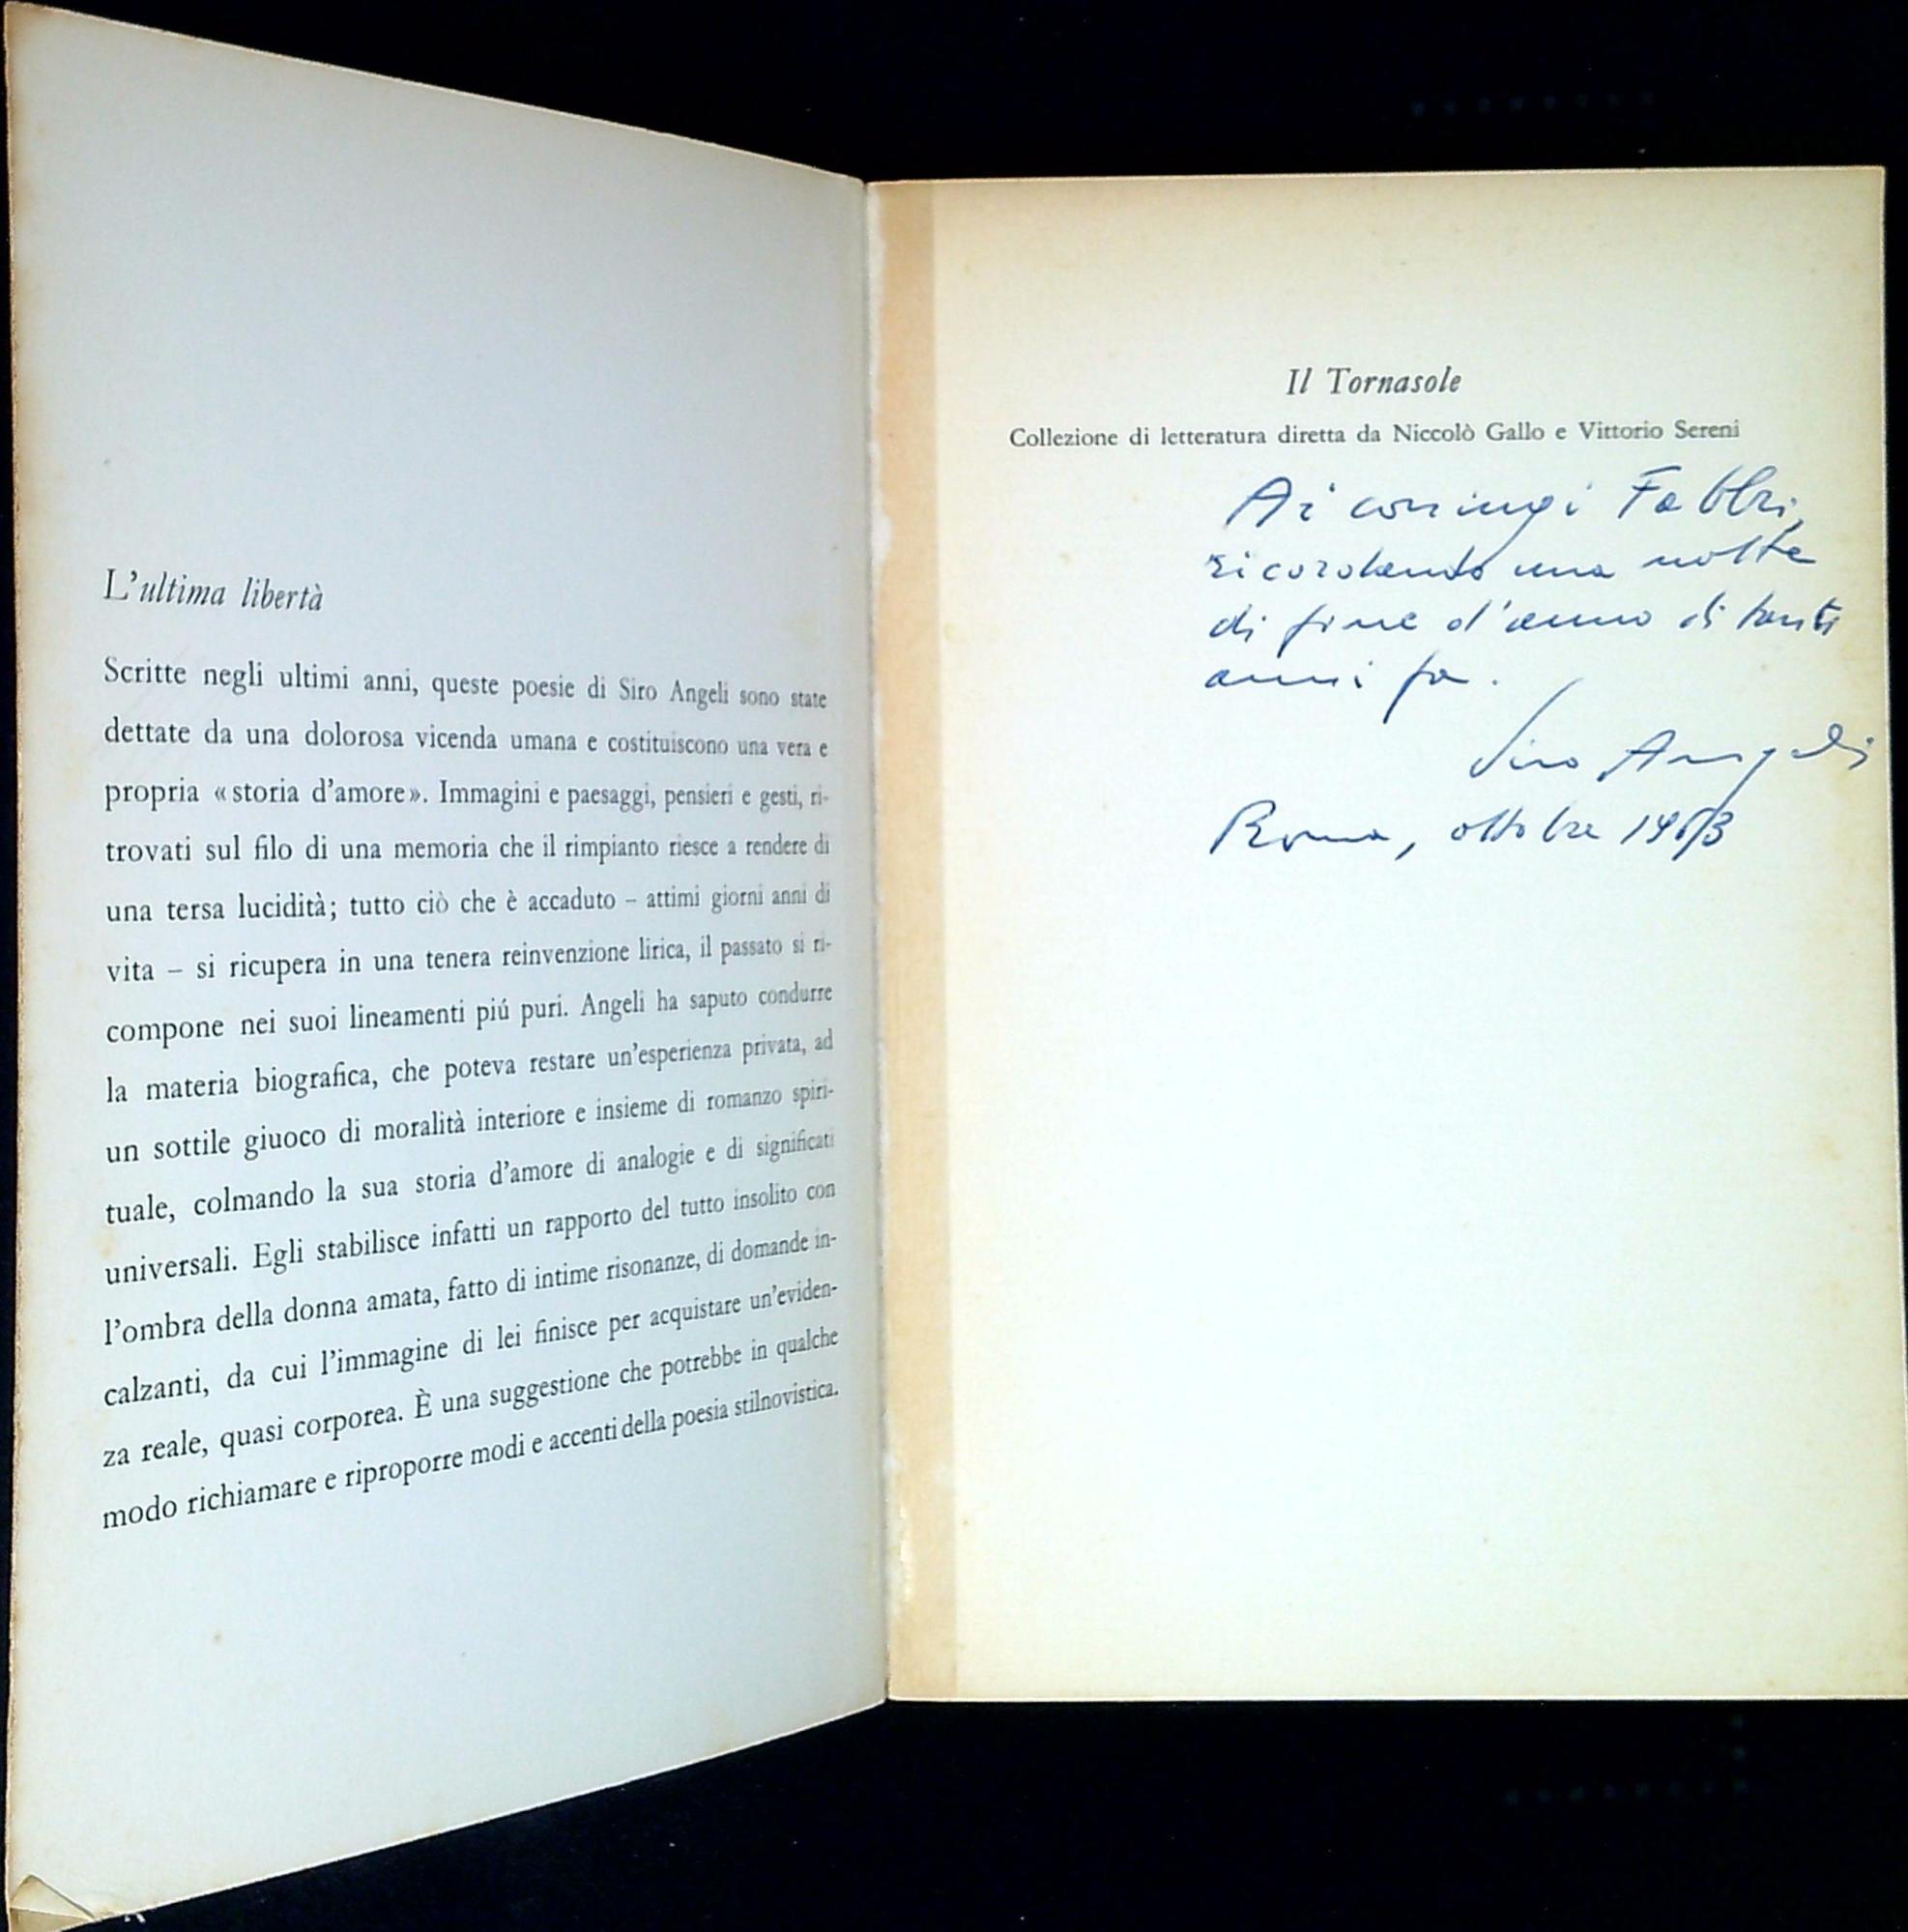 L'ultima libertà
Scritte negli ultimi anni, queste poesie di Siro Angeli sono state
dettate da una dolorosa vicenda umana e costituiscono una vera e
propria «storia d'amore». Immagini e paesaggi, pensieri e gesti, ri-
trovati sul filo di una memoria che il rimpianto riesce a rendere di
una tersa lucidità; tutto ciò che è accaduto – attimi giorni anni di
vita – si ricupera in una tenera reinvenzione lirica, il passato si ri-
compone nei suoi lineamenti piú puri. Angeli ha saputo condurre
la materia biografica, che poteva restare un'esperienza privata, ad
un sottile giuoco di moralità interiore e insieme di romanzo spiri-
tuale, colmando la sua storia d'amore di analogie e di significati
universali. Egli stabilisce infatti un rapporto del tutto insolito con
l'ombra della donna amata, fatto di intime risonanze, di domande in-
calzanti, da cui l'immagine di lei finisce per acquistare un'eviden-
za reale, quasi corporea. È una suggestione che potrebbe in qualche
modo richiamare e riproporre modi e accenti della poesia stilnovistica.
Il Tornasole
Collezione di letteratura diretta da Niccolò Gallo e Vittorio Sereni
Ai coniugi Fabbri,
ricordando una notte
di fine d'anno di tanti
anni fa.
Siro Angeli
Roma, ottobre 1963